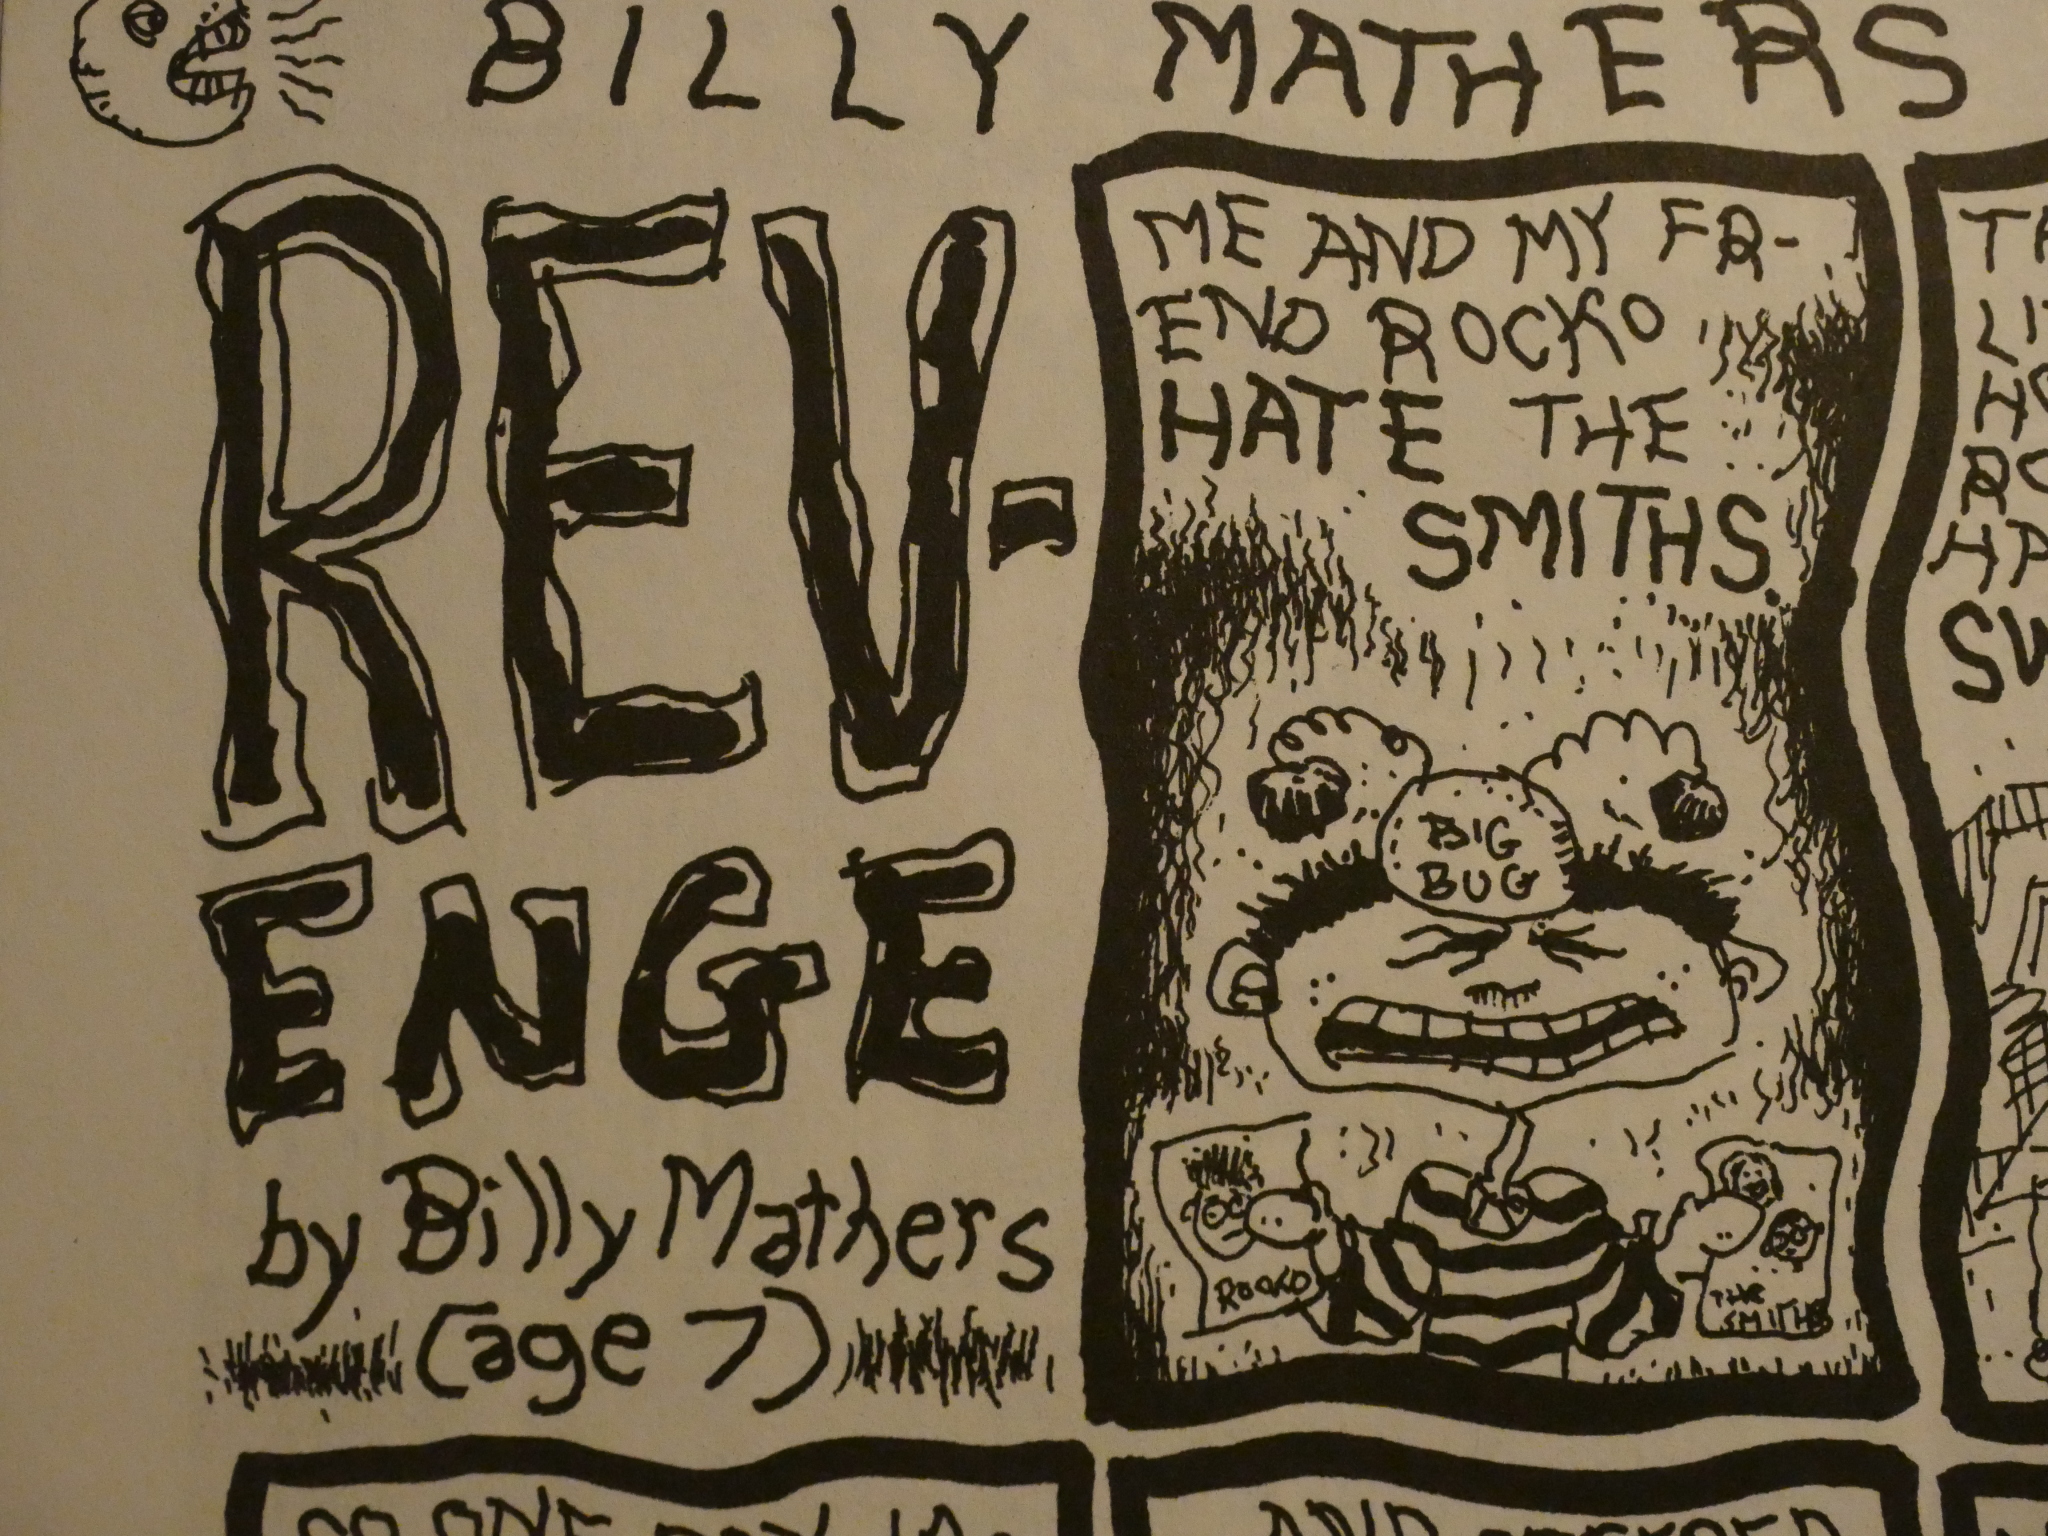 BILLY MATHERS
REV-
ENGE
by Billy Mathers
(age 7)
ME AND MY FR-
END ROCKO
HATE THE
SMITHS.
BIG
BUG
ROCKO
THE
SMITHS
SO ONE DAY
AND